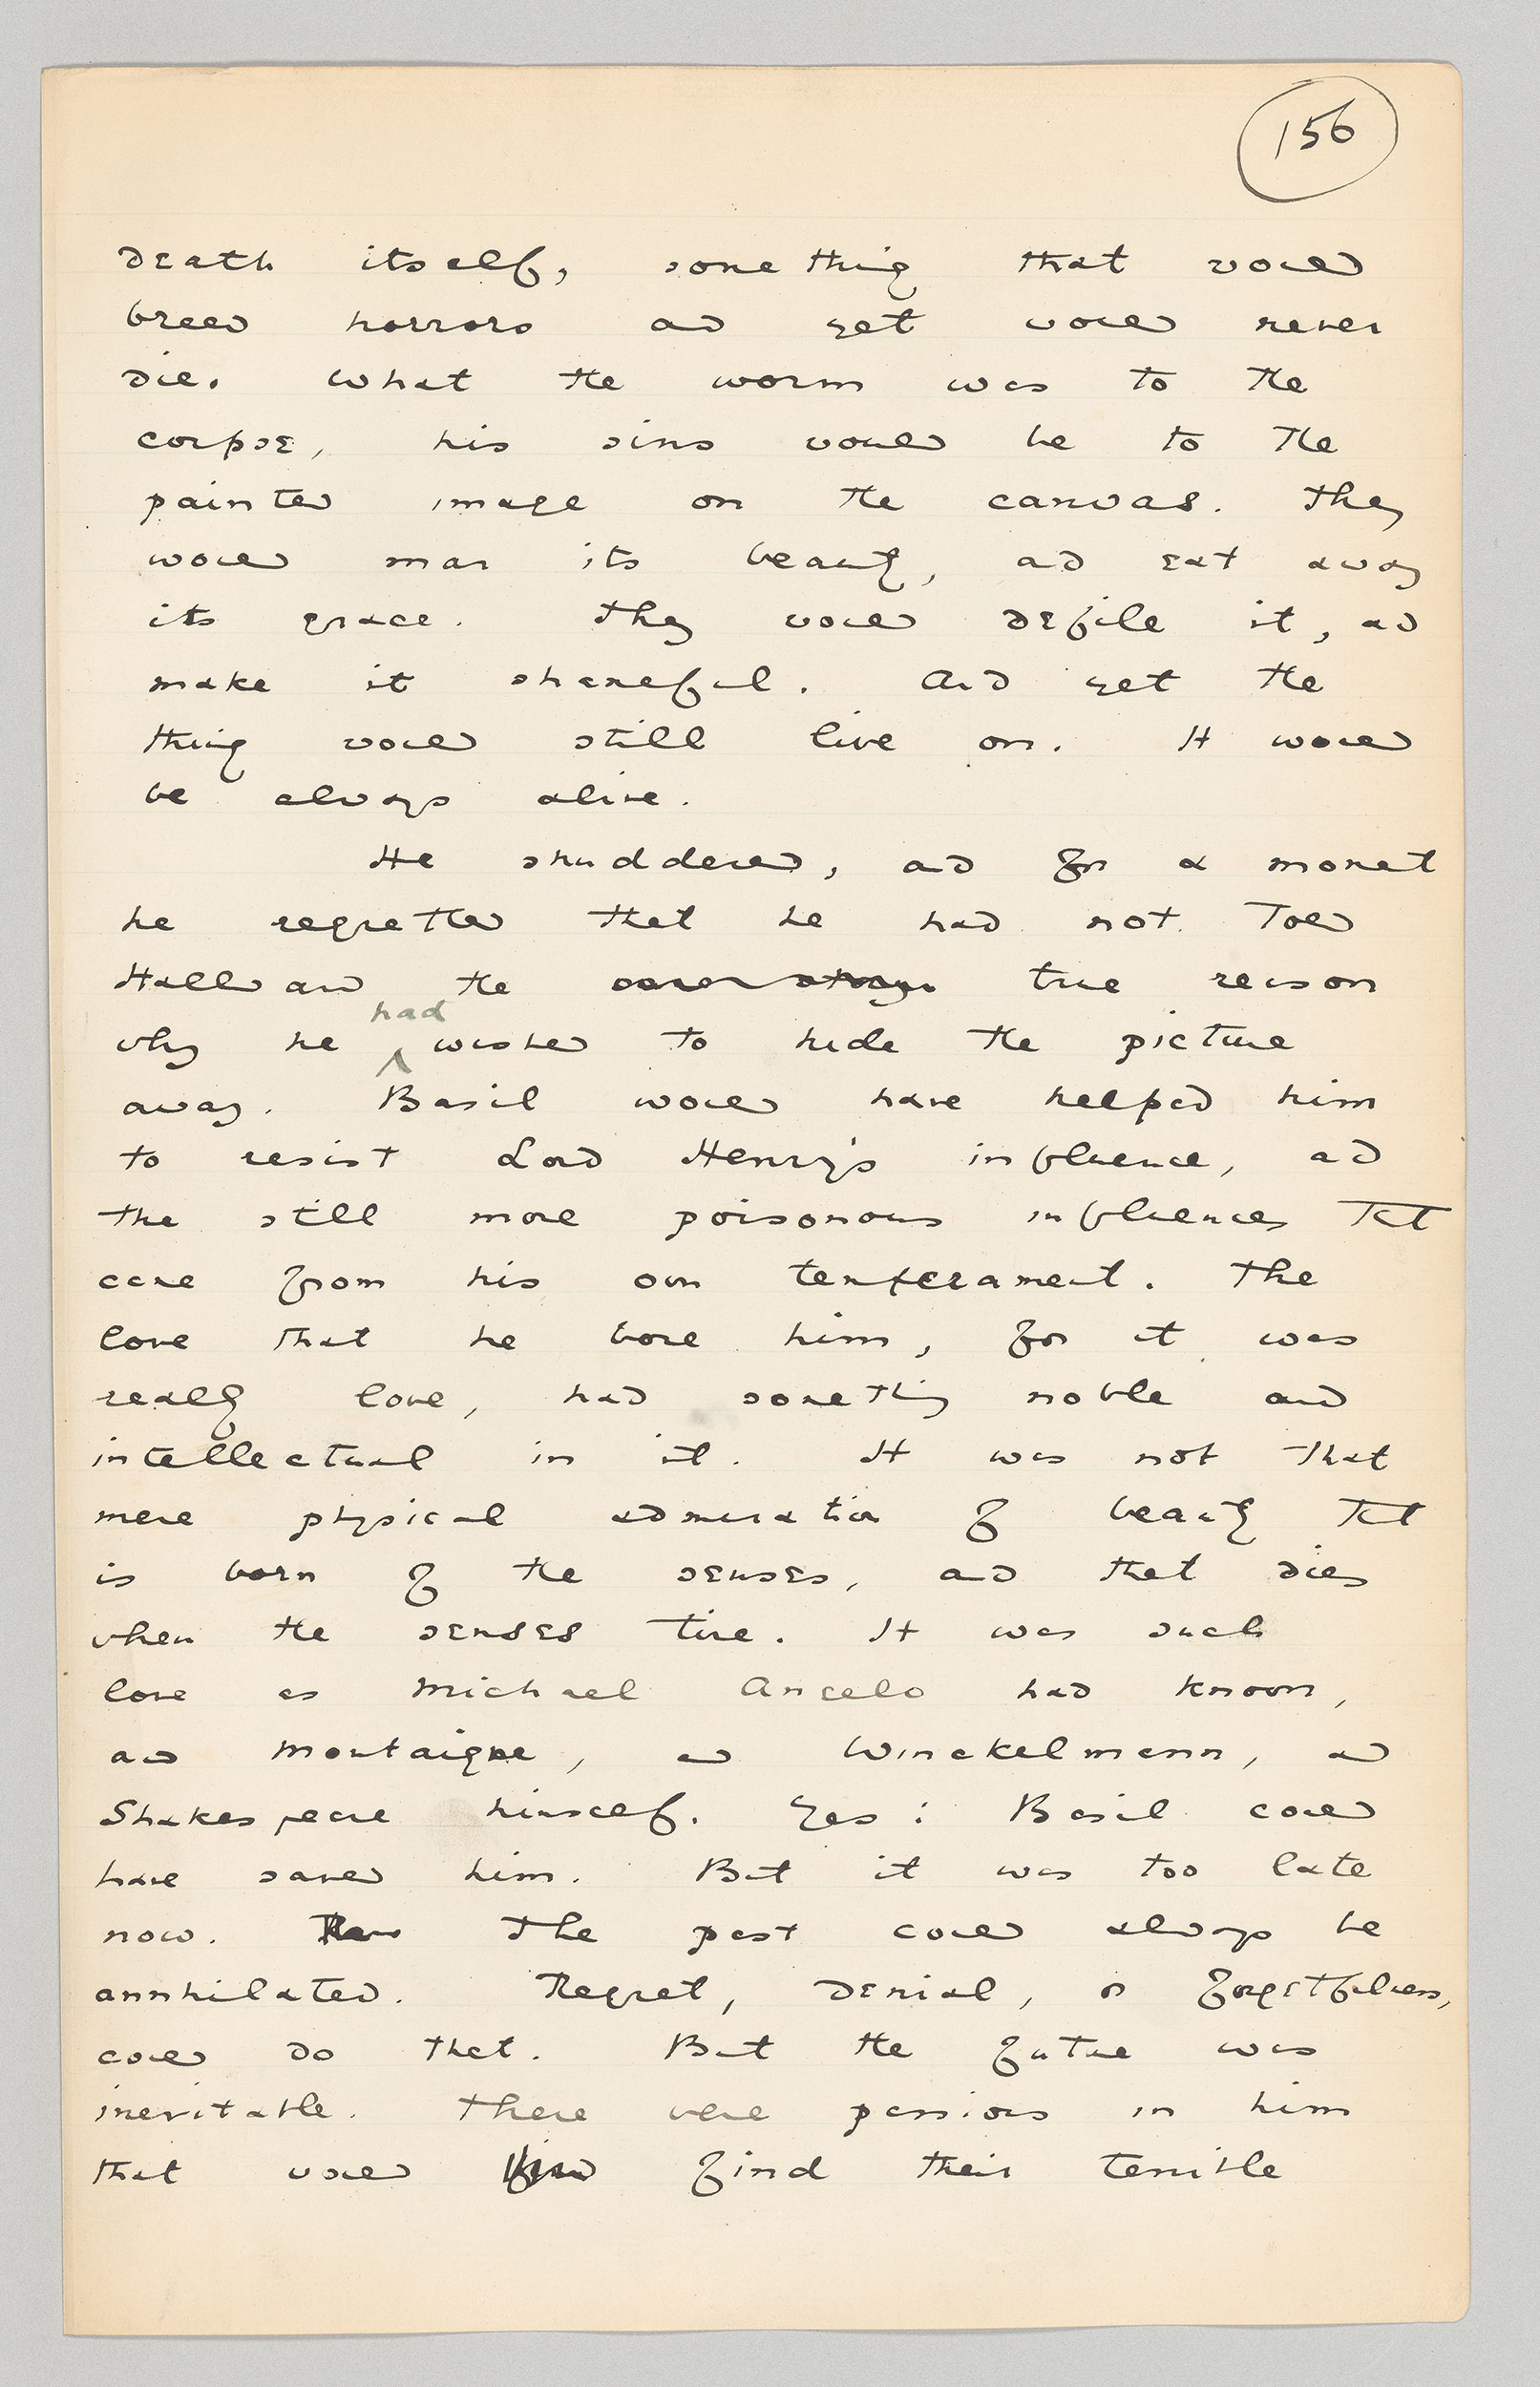 156
death itself, something that would
breed horrors and yet would never
die. What the worm was to the
corpse, his sins would be to the
painted image on the canvas. They
would mar its beauty, and eat away
its grace. They would defile it, and
make it shameful. And yet the
thing would still live on. It would
be always alive.
He shuddered, and for a moment
he regretted that he had not told
Hallward the true reason
had
why he wished to hide the picture
away. Basil would have helped him
to resist Lord Henry's influence, and
the still more poisonous influences that
came from his own temperament. The
love that he bore him, for it was
really love, had something noble and
intellectual in it. It was not that
mere physical admiration of beauty that
is born of the senses, and that dies
when the senses tire. It was such
love as Michael Angelo had known,
and Montaigne, and Winckelmann, and
Shakespeare himself. Yes: Basil could
have saved him. But it was too late
now. The past could always be
annhilated. Regret, denial, or forgetfulness,
could do that. But the future was
inevitable. There were passions in him
that would find their terrible